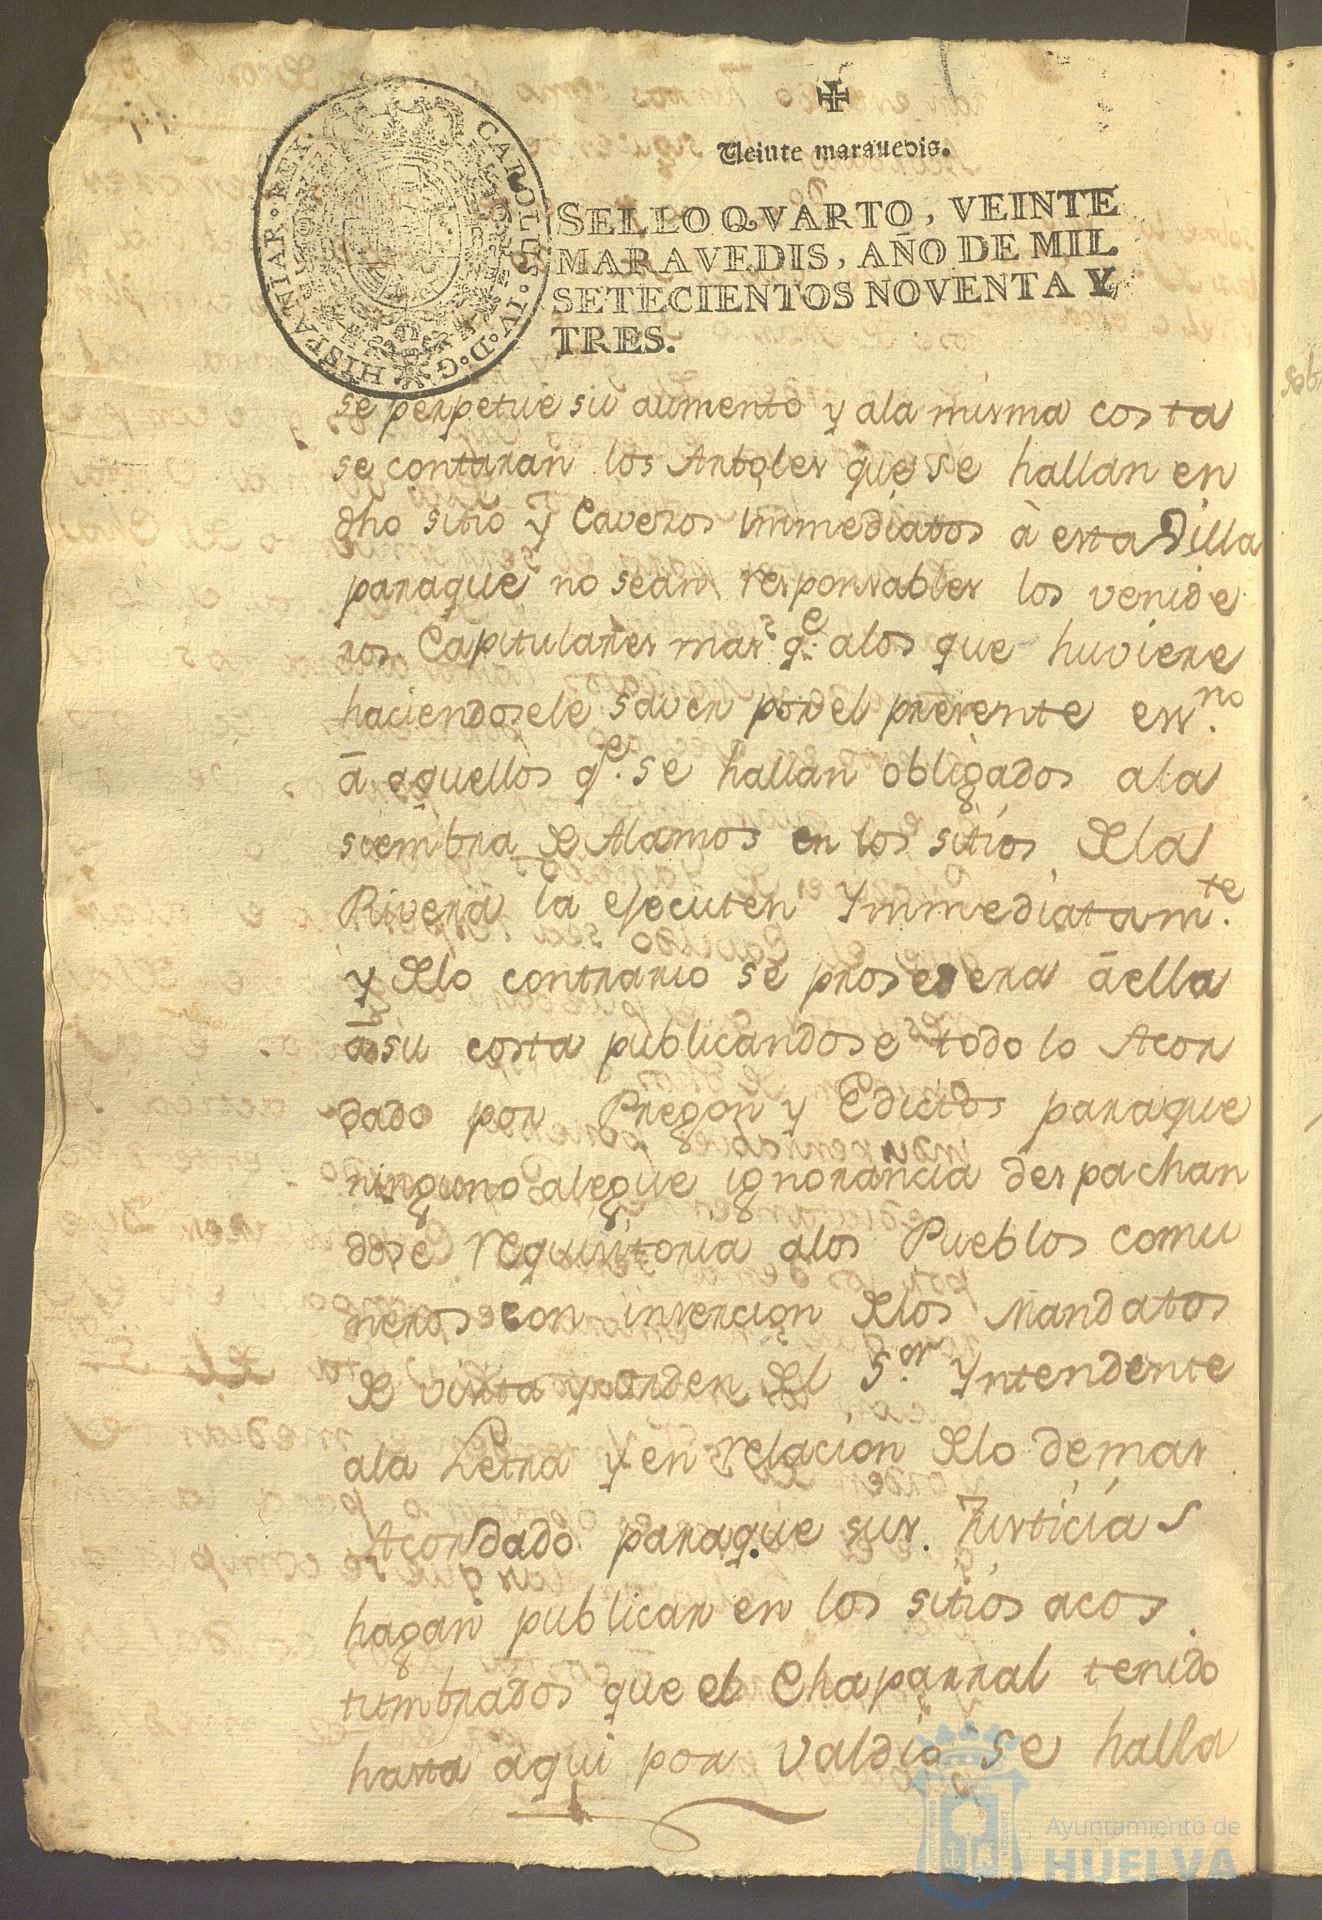 ✠
Veinte maravedis.
CAROLUS·IV·D·G·HISPANIAR·REX·
SELLO QVARTO, VEINTE
MARAVEDIS, AÑO DE MIL
SETECIENTOS NOVENTA Y
TRES.
se perpetue su aumento y ala misma costa
se contaran los Arboles que se hallan en
dho sitio y Caveros immediatos à esta Villa
paraque no sean responsables los venide
ros Capitulares mas q.e alos que huviere
haciendosele saver por el presente ess.no
ā aquellos q.e se hallan obligados ala
siembra de Alamos en los sitios dela
Rivera la ejecuten Ymmediatam.te
y delo contrario se prosedera āella
āsu costa publicandose todo lo Acor
dado por Pregon y Edictos paraque
ninguno alegue ignorancia despachan
dose requisitoria alos Pueblos comu
neros con insercion delos Mandatos
de visita y orden del S.or Yntendente
ala Letra y en relacion delo demas
Acordado paraque sus Justicias
hagan publicar en los sitios acos
tumbrados que el Chaparral tenido
hasta aqui por valdio se halla
Ayuntamiento de
HUELVA